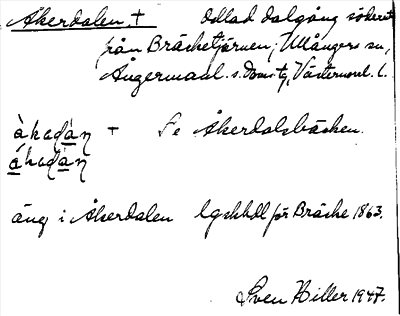 Åkerdalen, + Odlad dalgång söderut
från Bräcketjärnen; Ullångers sn,
Ångermanl. s. Domsg, Västernorrl. l.
àkadàn + Se Åkerdalsbäcken.
ákadàn
äng i Åkerdalen lgskhdl för Bräcke 1863.
Sven Hiller 1947.